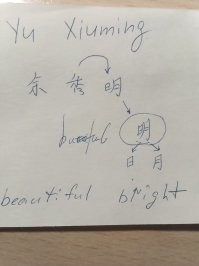 Yu Xiuming
余 秀 明
明
日 月
beautiful bright